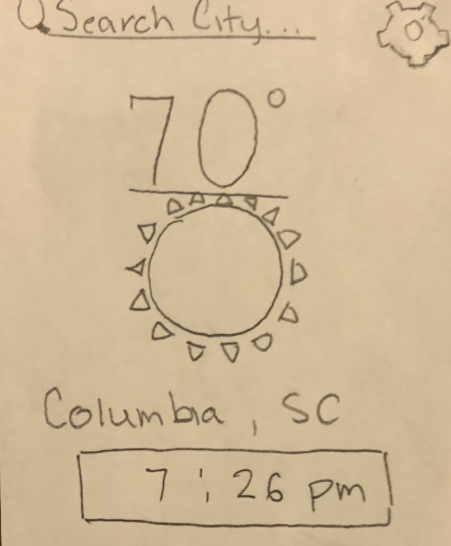 Search City...
70°
Columbia, SC
7:26 pm